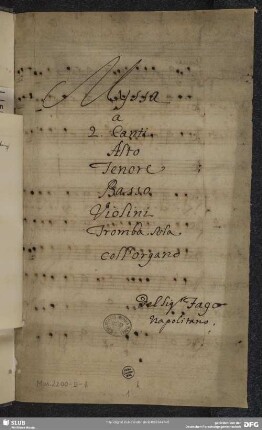 Messa
a
2 Canti
Alto
Tenore
Basso
Violini
Tromba sola
coll'organo
Del Sig.re Fago
Napolitano.
Mus. 2200-D-3
SLUB
DFG